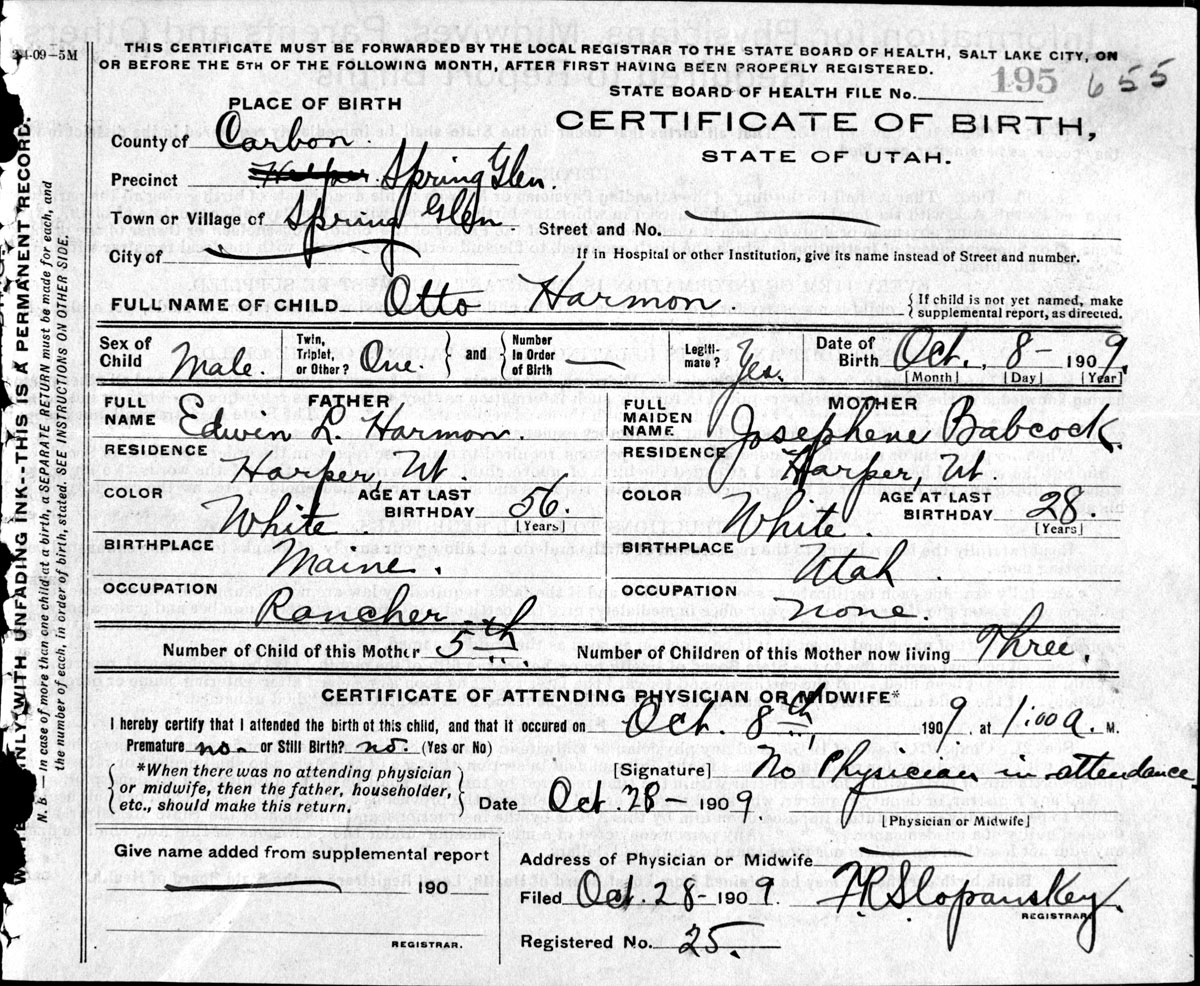 24-09-5M
THIS CERTIFICATE MUST BE FORWARDED BY THE LOCAL REGISTRAR TO THE STATE BOARD OF HEALTH, SALT LAKE CITY, ON
OR BEFORE THE 5TH OF THE FOLLOWING MONTH, AFTER FIRST HAVING BEEN PROPERLY REGISTERED.
STATE BOARD OF HEALTH FILE No. 195 655
PLACE OF BIRTH
CERTIFICATE OF BIRTH,
STATE OF UTAH.
County of Carbon.
Precinct Helper Spring Glen.
Town or Village of Spring Glen
Street and No.
City of
If in Hospital or other Institution, give its name instead of Street and number.
FULL NAME OF CHILD Otto Harmon.
{If child is not yet named, make
supplemental report, as directed.
Sex of Child Male.
Twin, Triplet, or Other? One. } and { Number In Order of Birth
Legiti-mate? Yes.
Date of Birth Oct., 8- 1909.
[Month] [Day] [Year]
FATHER
FULL NAME Edwin L. Harmon.
RESIDENCE Harper, Ut.
COLOR White
AGE AT LAST BIRTHDAY 56.
[Years]
BIRTHPLACE Maine.
OCCUPATION Rancher
MOTHER
FULL MAIDEN NAME Josephene Babcock
RESIDENCE Harper, Ut
COLOR White.
AGE AT LAST BIRTHDAY 28
[Years]
BIRTHPLACE Utah.
OCCUPATION none.
Number of Child of this Mother 5th
Number of Children of this Mother now living Three.
CERTIFICATE OF ATTENDING PHYSICIAN OR MIDWIFE*
I hereby certify that I attended the birth of this child, and that it occured on Oct. 8th, 1909 at 1:00 a. M.
Premature no. or Still Birth? no. (Yes or No)
{ *When there was no attending physician
or midwife, then the father, householder,
etc., should make this return. }
[Signature] No Physician in attendance
Date Oct. 28- 1909.
[Physician or Midwife]
Give name added from supplemental report
190
REGISTRAR.
Address of Physician or Midwife
Filed Oct. 28- 1909. Slopanskey.
REGISTRAR
Registered No. 25.
ONLY WITH UNFADING INK--THIS IS A PERMANENT RECORD.
N. B.—In case of more than one child at a birth, a SEPARATE RETURN must be made for each, and
the number of each, in order of birth, stated. SEE INSTRUCTIONS ON OTHER SIDE.